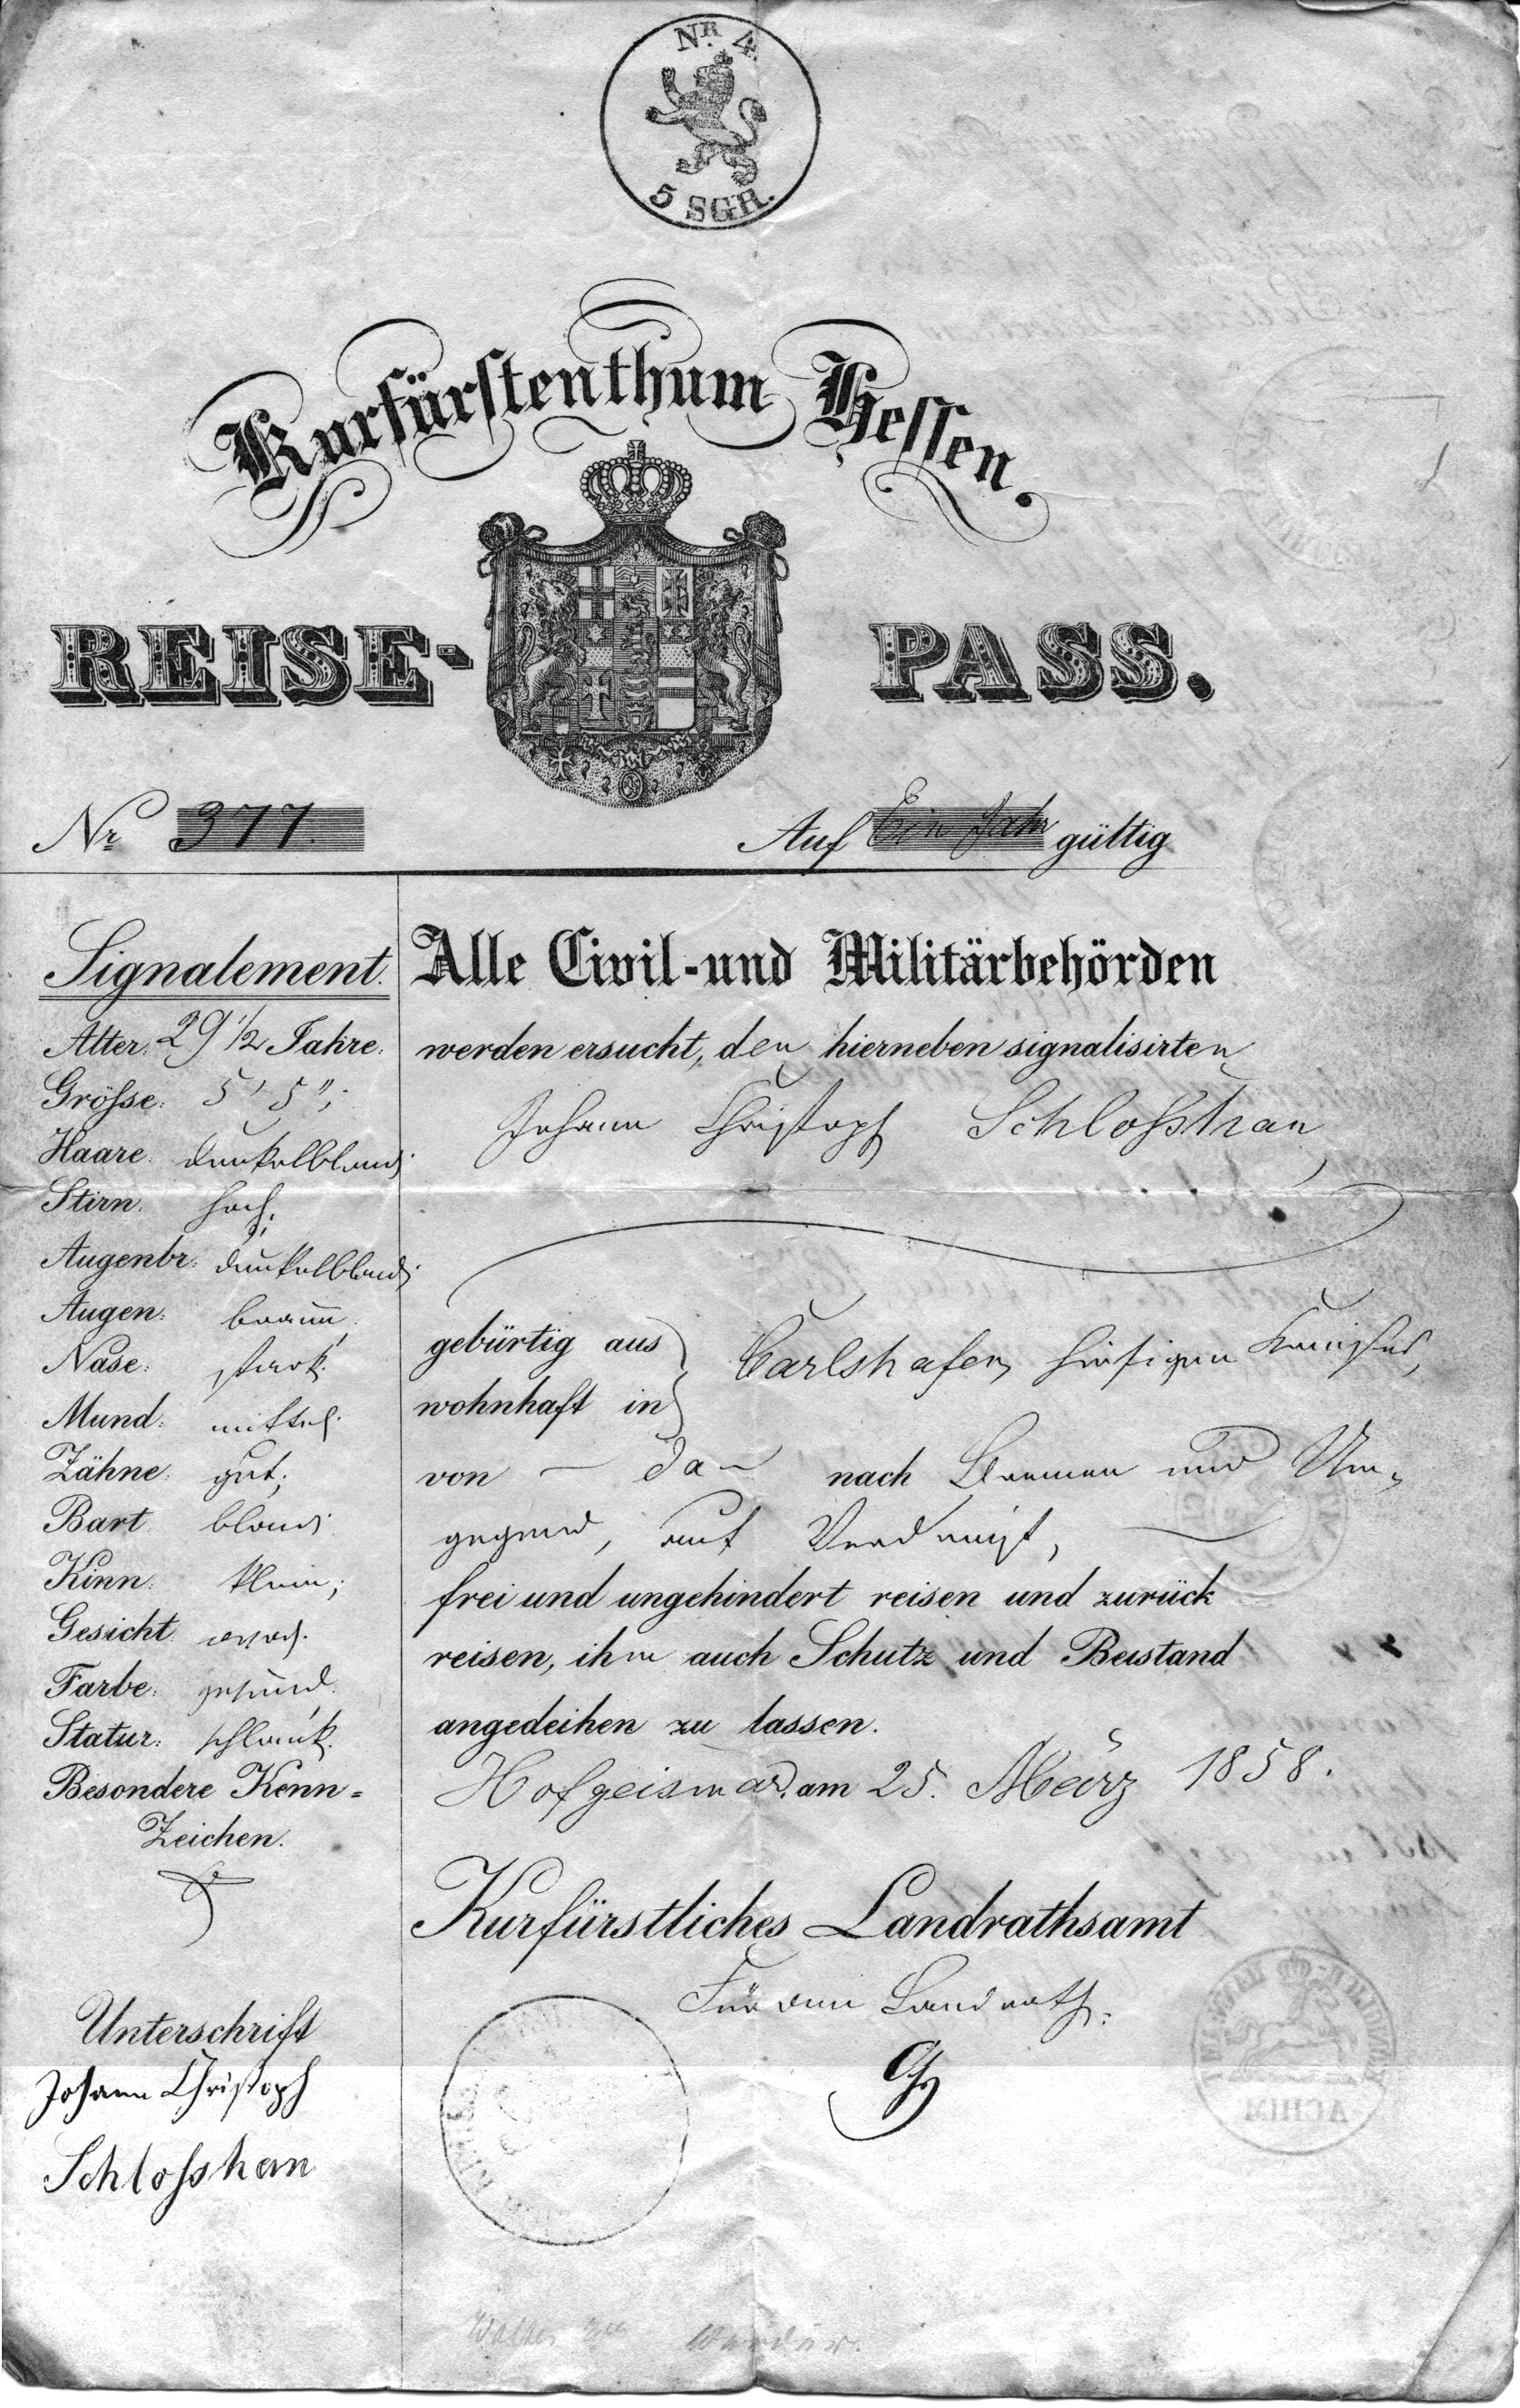 NR. 4
5 SGR.
Kurfürstenthum Hessen.
REISE- PASS.
Nr. 377. Auf Ein Jahr gültig
Signalement.
Alter: 29 1/2 Jahre.
Grösse: 5' 5";
Haare: dunkelblond;
Stirn: hoch;
Augenbr: dunkelblond;
Augen: braun;
Nase: stark;
Mund: mittel;
Zähne: gut;
Bart blond;
Kinn: klein;
Gesicht: oval;
Farbe: gesund;
Statur: schlank.
Besondere Kenn=
Zeichen.
Unterschrift
Johann Christoph
Schlosshan
Alle Civil-und Militärbehörden
werden ersucht, den hierneben signalisirten
Johann Christoph Schloßhan,
gebürtig aus
wohnhaft in
Carlshafen, hiesigen Kreises,
von – da – nach Bremen und Um-
gegend, auf Verdienst,
frei und ungehindert reisen und zurück
reisen, ihm auch Schutz und Beistand
angedeihen zu lassen.
Hofgeismar, am 25. März 1858.
Kurfürstliches Landrathsamt
Für den Landrath:
ACHIM